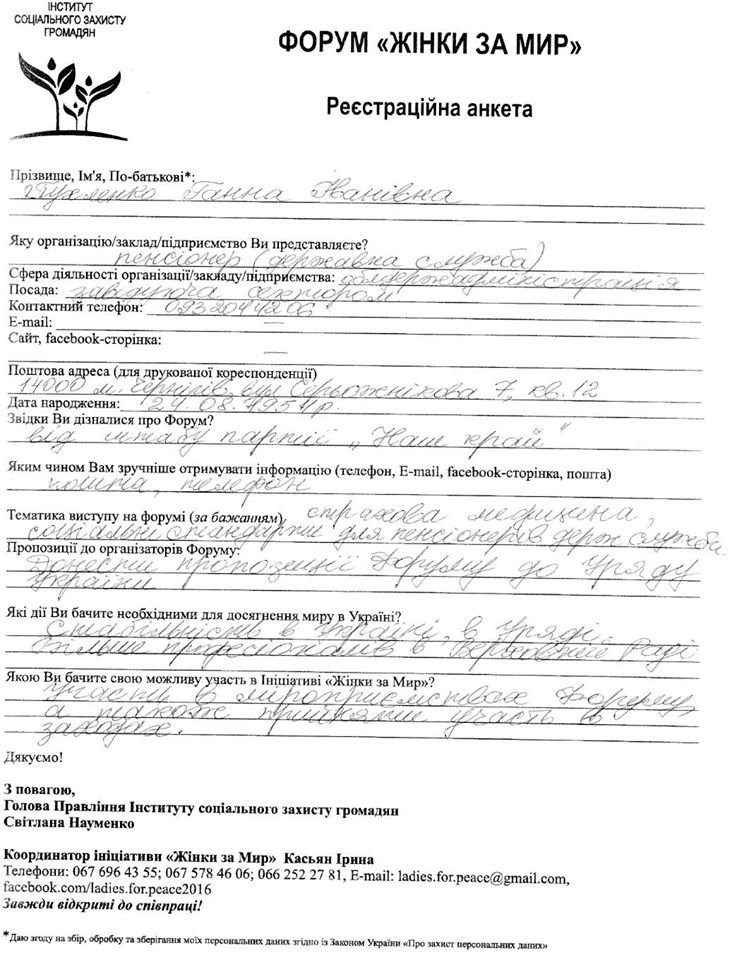 ІНСТИТУТ
СОЦІАЛЬНОГО ЗАХИСТУ
ГРОМАДЯН
ФОРУМ «ЖІНКИ ЗА МИР»
Реєстраційна анкета
Прізвище, Ім'я, По-батькові*:
Ганна Іванівна
Яку організацію/заклад/підприємство Ви представляєте?
пенсіонер (державна служба)
Сфера діяльності організації/закладу/підприємства: облдержадміністрація
Посада: завідуюча сектором
Контактний телефон: 0932044206
E-mail: —
Сайт, facebook-сторінка:
—
Поштова адреса (для друкованої кореспонденції)
14000 м. Чернігів, вул Серьожнікова 7, кв. 12
Дата народження: 24.08.1951р.
Звідки Ви дізналися про Форум?
від штабу партії „Наш край"
Яким чином Вам зручніше отримувати інформацію (телефон, E-mail, facebook-сторінка, пошта)
пошта, телефон
Тематика виступу на форумі (за бажанням) страхова медицина,
соціальні стандарти для пенсіонерів держ служби
Пропозиції до організаторів Форуму:
Донести пропозиції Форуму до Уряду
України
Які дії Ви бачите необхідними для досягнення миру в Україні?
Стабільність в Україні, в Уряді.
Більше професіоналів в Верховній Раді
Якою Ви бачите свою можливу участь в Ініціативі «Жінки за Мир»?
Участь в міроприємствах Форуму,
а також прийняти участь в
заходах.
Дякуємо!
З повагою,
Голова Правління Інституту соціального захисту громадян
Світлана Науменко
Координатор ініціативи «Жінки за Мир» Касьян Ірина
Телефони: 067 696 43 55; 067 578 46 06; 066 252 27 81, E-mail: ladies.for.peace@gmail.com,
facebook.com/ladies.for.peace2016
Завжди відкриті до співпраці!
*Даю згоду на збір, обробку та зберігання моїх персональних даних згідно із Законом України «Про захист персональних даних»